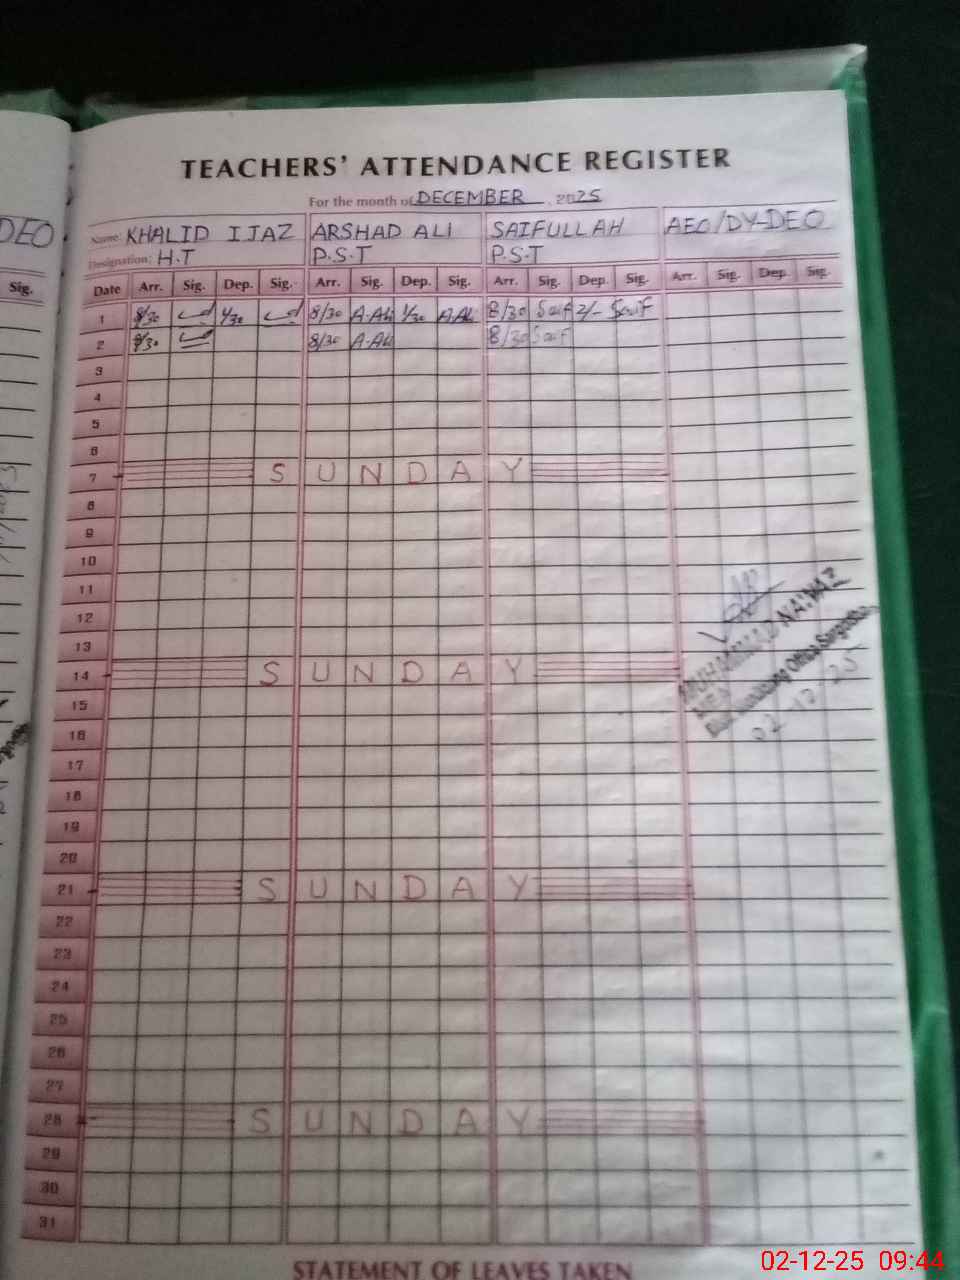 TEACHERS' ATTENDANCE REGISTER
For the month of DECEMBER, 2025
DEO
Name: KHALID IJAZ ARSHAD ALI SAIFULLAH AEO/DY-DEO
Designation: H.T P.S.T P.S.T
Sig. Date Arr. Sig. Dep. Sig. Arr. Sig. Dep. Sig. Arr. Sig. Dep. Sig. Arr. Sig. Dep. Sig.
1 8/30 1/30 8/30 A-Ali 1/30 A-Ali 8/30 Saif 2/- Saif
2 8/30 8/30 A-Ali 8/30 Saif
3
4
5
6
7 SUNDAY
8
9
10
11
12
13
14 SUNDAY
15
16
17
18
19
20
21 SUNDAY
22
23
24
25
26
27
28 SUNDAY
29
30
31
MUHAMMAD NAWAZ
MEA
Monitoring Office Sargodha
02-12-25
STATEMENT OF LEAVES TAKEN
02-12-25 09:44